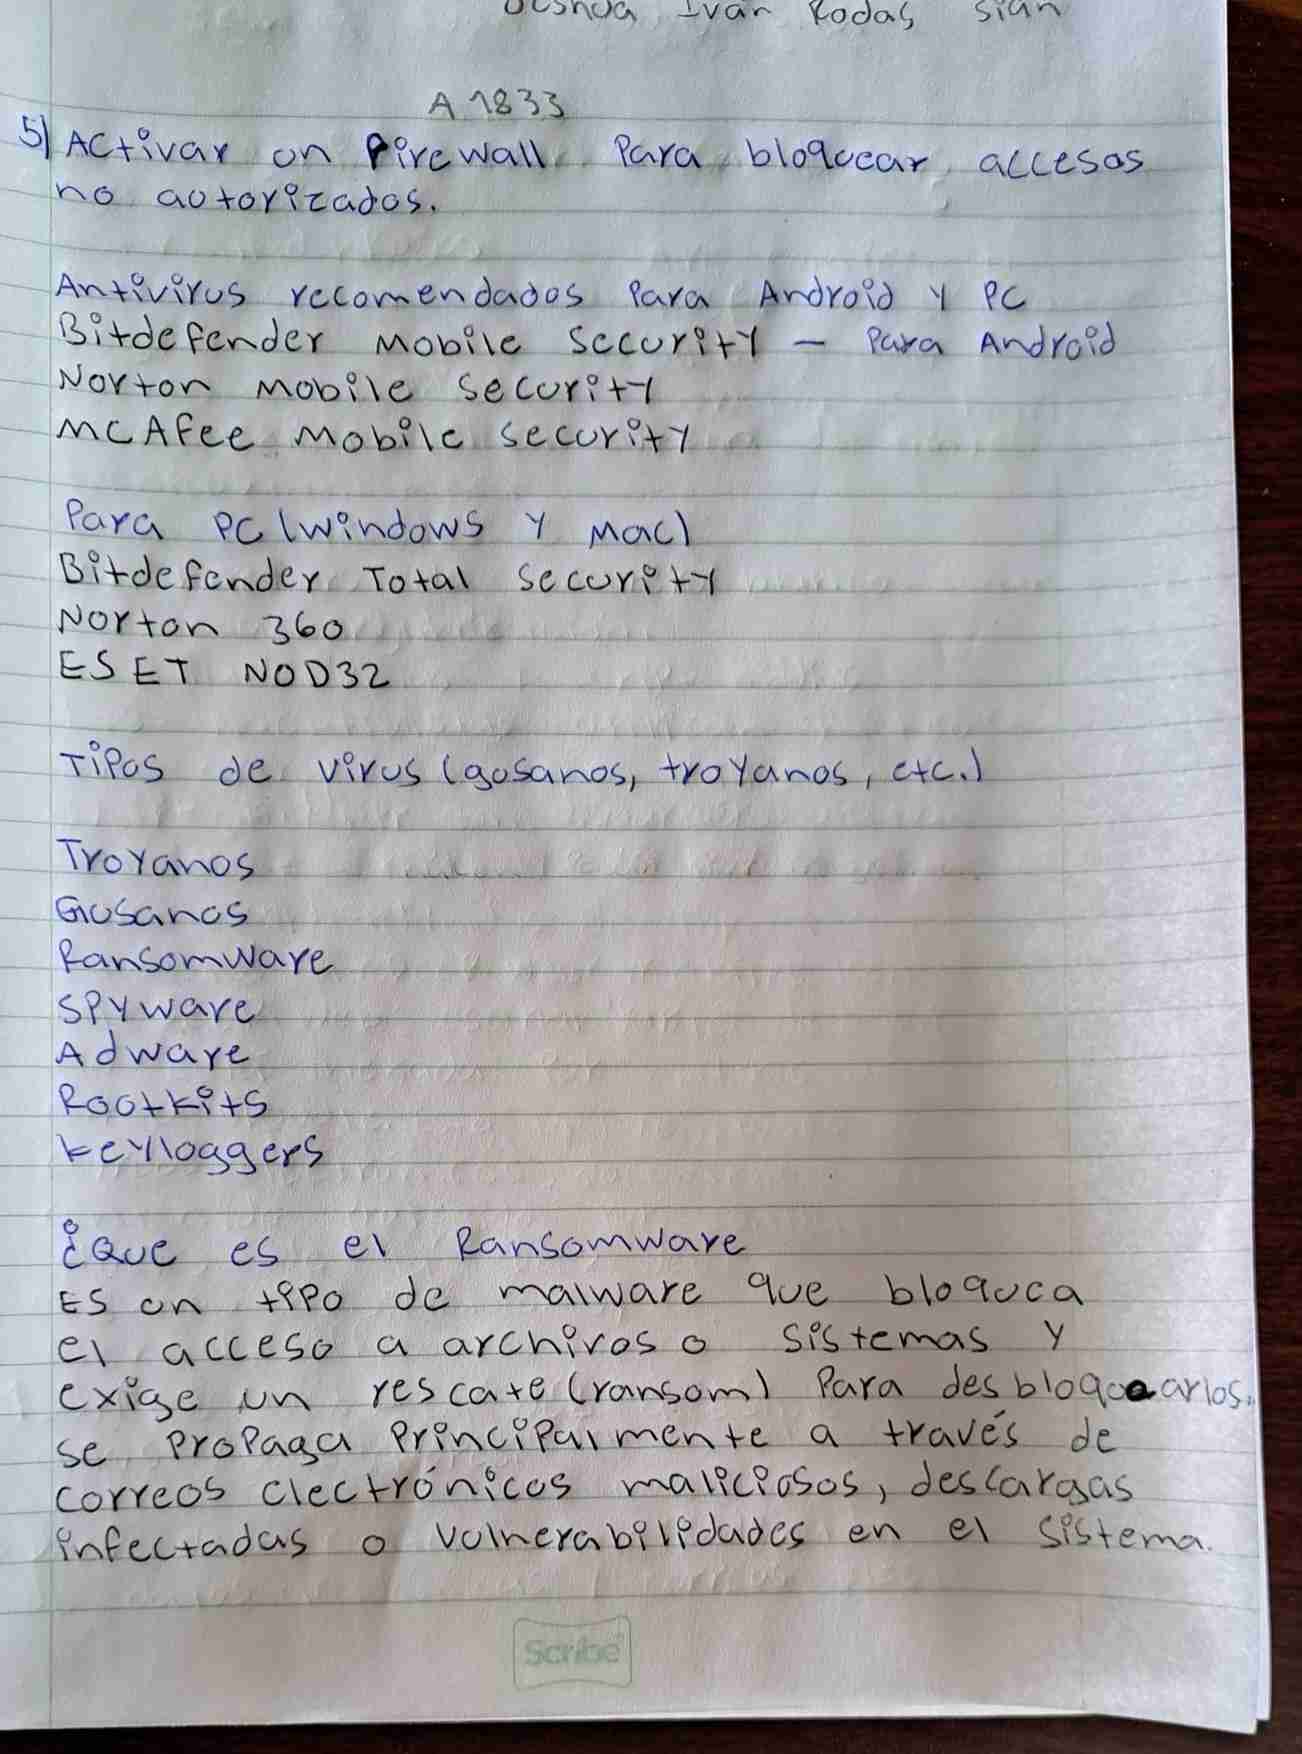 Ivan Rodas Sian
A 1833
5) Activar un Firewall Para bloquear accesos
no autorizados.
Antivirus recomendados Para Android y PC
Bitdefender Mobile Security - Para Android
Norton Mobile Security
McAfee Mobile Security
Para PC (Windows y Mac)
Bitdefender Total Security
Norton 360
ESET NOD32
Tipos de virus (gusanos, troyanos, etc.)
Troyanos
Gusanos
Ransomware
Spyware
Adware
Rootkits
Keyloggers
¿Que es el Ransomware
Es un tipo de malware que bloquea
el acceso a archivos o sistemas y
exige un rescate (ransom) Para desbloquearlos.
se Propaga Principalmente a través de
correos electrónicos maliciosos, descargas
infectadas o vulnerabilidades en el sistema.
Scribe